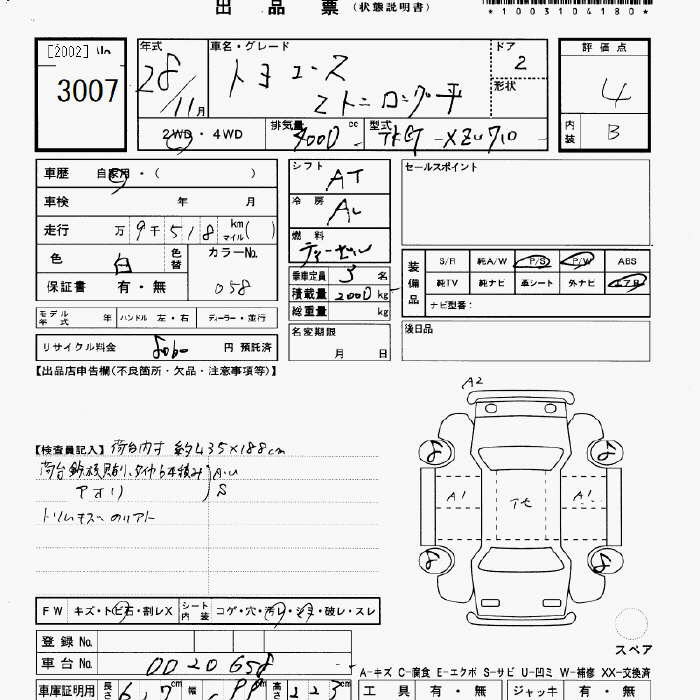 出品票(状態説明書)
*1003104180*
[2002]
3007
年式
28/11月
車名・グレード
トヨエース
2トン ロング 平
ドア
2
形状
2WD・4WD
排気量 4000 cc
型式
-XZU710
評価点
4
内装
B
車歴 自家用・( )
車検 年 月
走行 万9千518 km マイル( )
色 白 色替
カラーNo.
058
保証書 有・無
シフト AT
冷房
燃料 ディーゼル
乗車定員 3 名
積載量 2000 kg
総重量 kg
名変期限
月 日
セールスポイント
装備品
S/R 純A/W P/S P/W ABS
純TV 純ナビ 革シート 外ナビ エアB
ナビ型番:
後日品
モデル年式 年 ハンドル 左・右 ディーラー・並行
リサイクル料金 8060 円 預託済
【出品店申告欄(不良箇所・欠品・注意事項等)】
【検査員記入】荷台内寸 約435×188cm
アオリ S
A2
8 8
A1 A1
8 8
スペア
FW キズ・トビ石・割レX シート内装 コゲ・穴・汚レ・シミ・破レ・スレ
登録No.
車台No. 0020658
A-キズ C-腐食 E-エクボ S-サビ U-凹ミ W-補修 XX-交換済
車庫証明用 長さ 6 7cm 幅 cm 高さ 223cm
工具 有・無 ジャッキ 有・無